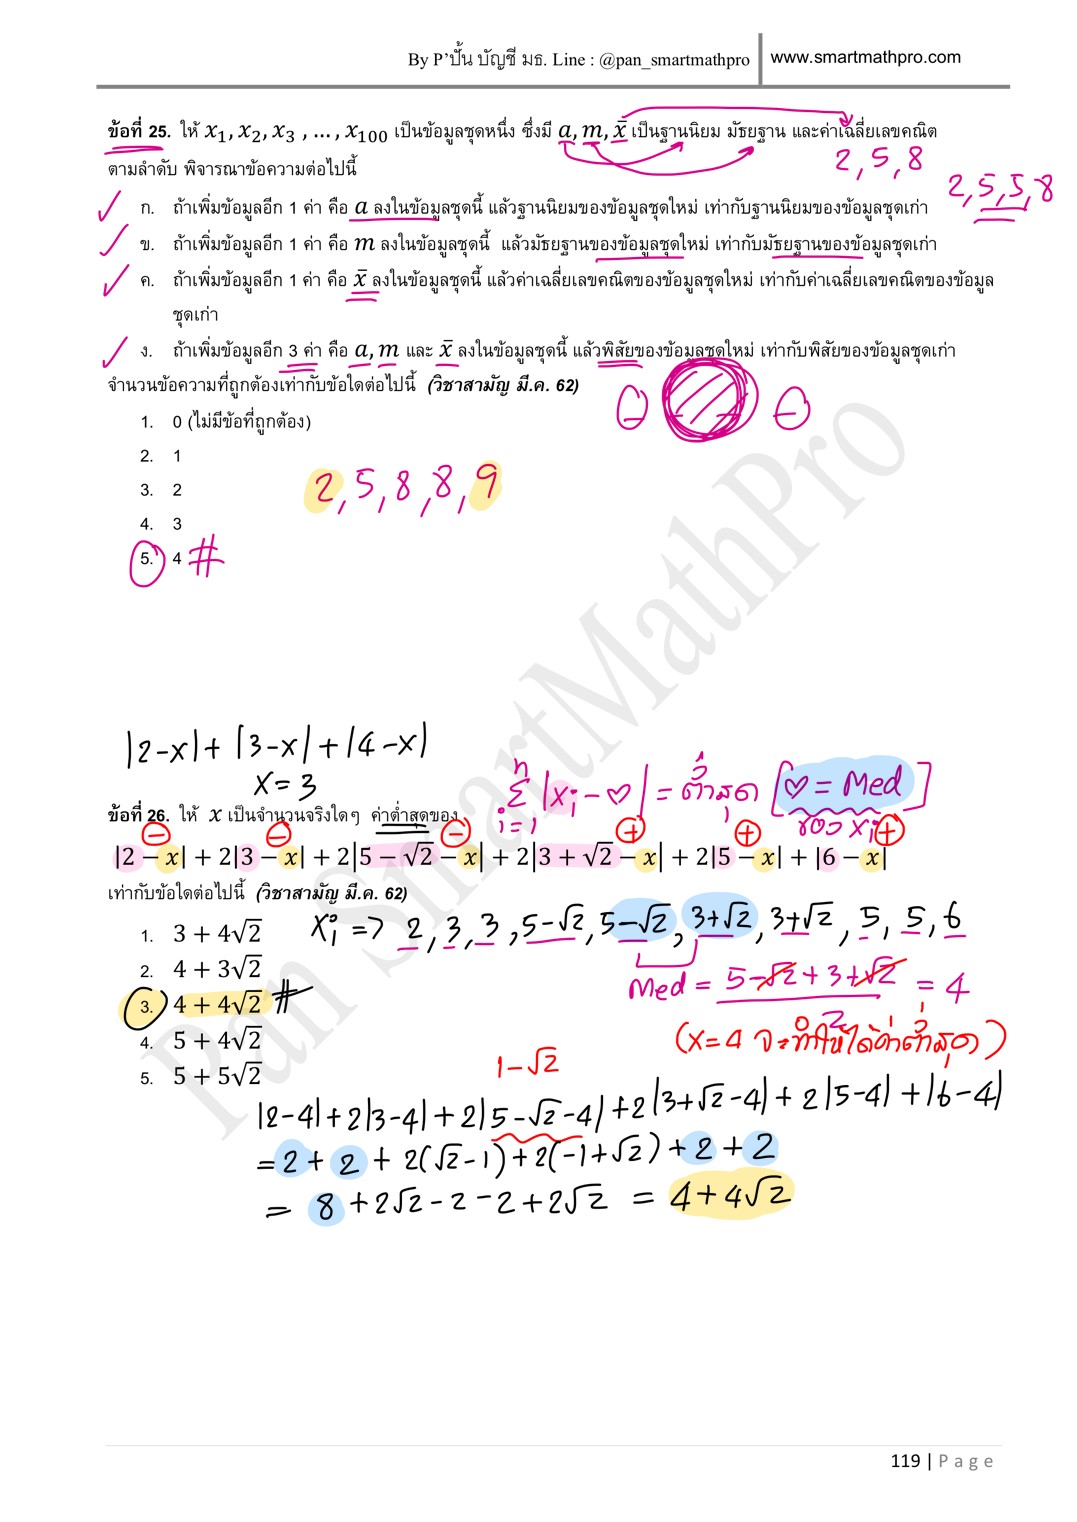 By P'ปั้น บัญชี มธ. Line : @pan_smartmathpro www.smartmathpro.com
ข้อที่ 25. ให้ x₁, x₂, x₃ , … , x₁₀₀ เป็นข้อมูลชุดหนึ่ง ซึ่งมี a, m, x̄ เป็นฐานนิยม มัธยฐาน และค่าเฉลี่ยเลขคณิต
ตามลำดับ พิจารณาข้อความต่อไปนี้
2, 5, 8
2, 5, 5, 8
ก. ถ้าเพิ่มข้อมูลอีก 1 ค่า คือ a ลงในข้อมูลชุดนี้ แล้วฐานนิยมของข้อมูลชุดใหม่ เท่ากับฐานนิยมของข้อมูลชุดเก่า
ข. ถ้าเพิ่มข้อมูลอีก 1 ค่า คือ m ลงในข้อมูลชุดนี้ แล้วมัธยฐานของข้อมูลชุดใหม่ เท่ากับมัธยฐานของข้อมูลชุดเก่า
ค. ถ้าเพิ่มข้อมูลอีก 1 ค่า คือ x̄ ลงในข้อมูลชุดนี้ แล้วค่าเฉลี่ยเลขคณิตของข้อมูลชุดใหม่ เท่ากับค่าเฉลี่ยเลขคณิตของข้อมูล
ชุดเก่า
ง. ถ้าเพิ่มข้อมูลอีก 3 ค่า คือ a, m และ x̄ ลงในข้อมูลชุดนี้ แล้วพิสัยของข้อมูลชุดใหม่ เท่ากับพิสัยของข้อมูลชุดเก่า
จำนวนข้อความที่ถูกต้องเท่ากับข้อใดต่อไปนี้ (วิชาสามัญ มี.ค. 62)
1. 0 (ไม่มีข้อที่ถูกต้อง)
2. 1
3. 2
4. 3
5. 4 #
2, 5, 8, 8, 9
|2-x| + |3-x| + |4-x|
x = 3
n Σ i=1 |xᵢ - ♡| = ต่ำสุด [♡ = Med]
ของ xᵢ
ข้อที่ 26. ให้ x เป็นจำนวนจริงใดๆ ค่าต่ำสุดของ
- - - + + +
|2 − x| + 2|3 − x| + 2|5 − √2 − x| + 2|3 + √2 − x| + 2|5 − x| + |6 − x|
เท่ากับข้อใดต่อไปนี้ (วิชาสามัญ มี.ค. 62)
1. 3 + 4√2
2. 4 + 3√2
3. 4 + 4√2 #
4. 5 + 4√2
5. 5 + 5√2
xᵢ => 2, 3, 3, 5-√2, 5-√2, 3+√2, 3+√2, 5, 5, 6
Med = (5-√2+3+√2)/2 = 4
(x=4 จะทำให้ได้ค่าต่ำสุด)
1-√2
|2-4| + 2|3-4| + 2|5-√2-4| + 2|3+√2-4| + 2|5-4| + |6-4|
= 2 + 2 + 2(√2-1) + 2(-1+√2) + 2 + 2
= 8 + 2√2 - 2 - 2 + 2√2 = 4+4√2
Pan SmartMathPro
119 | Page